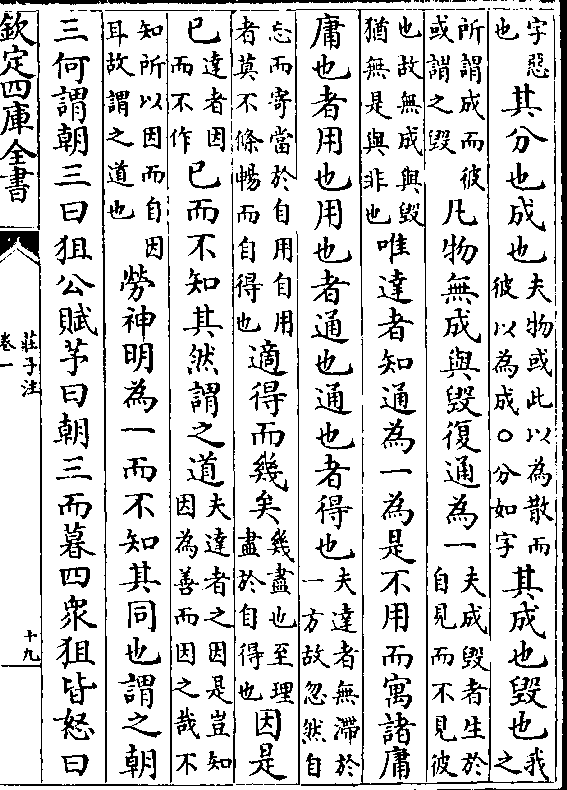 字惡也其分也成也夫物或此以為散而彼以為成○分如字其成也毀也我之
所謂成而彼或謂之毀凡物無成與毀復通為一夫成毀者生於自見而不見彼
也故無成與毀猶無是與非也唯達者知通為一為是不用而寓諸庸
庸也者用也用也者通也通也者得也夫達者無滯於一方故忽然自
忘而寄當於自用自用者莫不條暢而自得也適得而幾矣幾盡也至理盡於自得也因是
已達者因而不作已而不知其然謂之道夫達者之因是豈知因為善而因之哉不
知所以因而自因耳故謂之道也勞神明為一而不知其同也謂之朝
三何謂朝三曰狙公賦芧曰朝三而暮四衆狙皆怒曰
欽定四庫全書
莊子注
卷一
十九